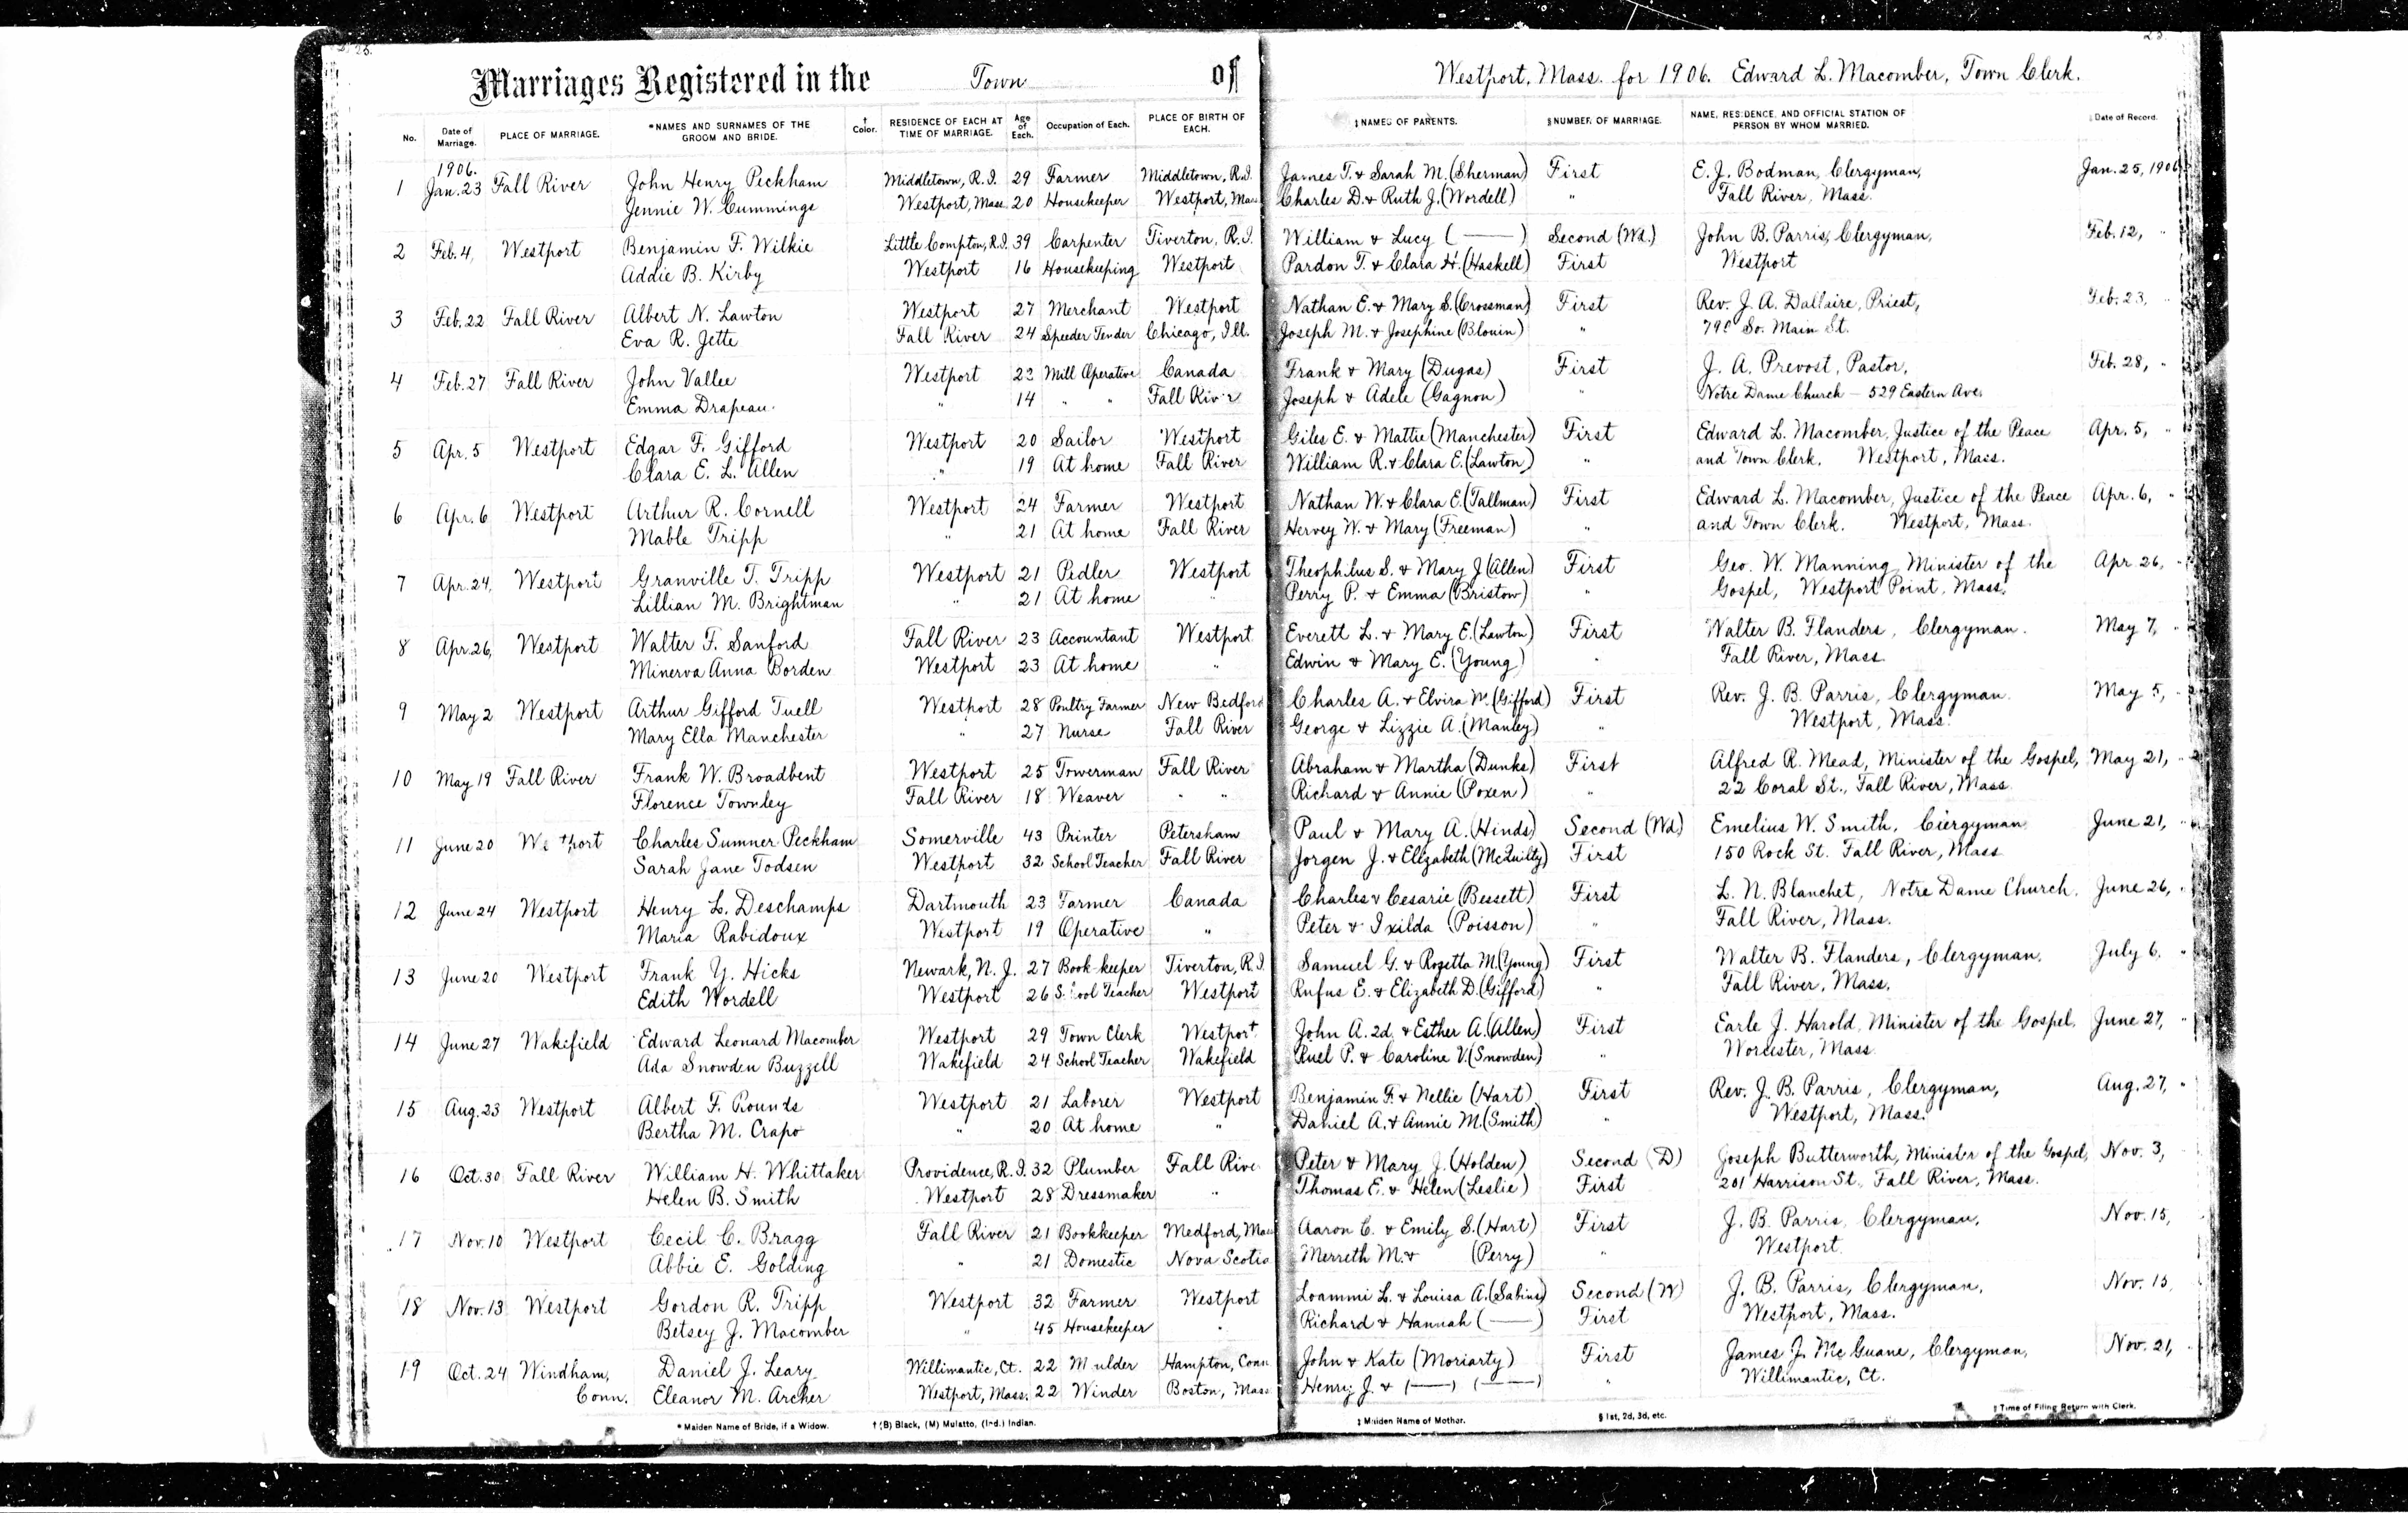 23.
Marriages Registered in the Town of Westport, Mass. for 1906. Edward L. Macomber, Town Clerk.
No. Date of Marriage. PLACE OF MARRIAGE. *NAMES AND SURNAMES OF THE GROOM AND BRIDE. † Color. RESIDENCE OF EACH AT TIME OF MARRIAGE. Age of Each. Occupation of Each. PLACE OF BIRTH OF EACH. ‡NAMES OF PARENTS. §NUMBER OF MARRIAGE. NAME, RESIDENCE, AND OFFICIAL STATION OF PERSON BY WHOM MARRIED. Date of Record.
1906.
1 Jan. 23 Fall River John Henry Peckham Middletown, R.I. 29 Farmer Middletown, R.I. James T. & Sarah M. (Sherman) First E. J. Bodman, Clergyman, Jan. 25, 1906
Jennie W. Cummings Westport, Mass 20 Housekeeper Westport, Mass Charles D. & Ruth J. (Wordell) " Fall River, Mass.
2 Feb. 4, Westport Benjamin F. Wilkie Little Compton, R.I. 39 Carpenter Tiverton, R.I. William & Lucy ( — ) Second (Wd.) John B. Parris, Clergyman, Feb. 12, "
Addie B. Kirby Westport 16 Housekeeping Westport Pardon T. & Clara H. (Haskell) First Westport
3 Feb. 22 Fall River Albert N. Lawton Westport 27 Merchant Westport Nathan E. & Mary S. (Crossman) First Rev. J. A. Dallaire, Priest, Feb. 23, "
Eva R. Jette Fall River 24 Speeder Tender Chicago, Ill. Joseph M. & Josephine (Blouin) " So. Main St.
4 Feb. 27 Fall River John Vallee Westport 22 Mill Operative Canada Frank & Mary (Dugas) First J. A. Prevost, Pastor, Feb. 28, "
Emma Drapeau. " 14 " " Fall River Joseph & Adele (Gagnon) " Notre Dame Church — 529 Eastern Ave.
5 Apr. 5 Westport Edgar F. Gifford Westport 20 Sailor Westport Giles E. & Mattie (Manchester) First Edward L. Macomber, Justice of the Peace Apr. 5, "
Clara E. L. Allen " 19 At home Fall River William R. & Clara E. (Lawton) " and Town Clerk. Westport, Mass.
6 Apr. 6 Westport Arthur R. Cornell Westport 24 Farmer Westport Nathan W. & Clara E. (Tallman) First Edward L. Macomber, Justice of the Peace Apr. 6, "
Mable Tripp " 21 At home Fall River Hervey W. & Mary (Freeman) " and Town Clerk. Westport, Mass.
7 Apr. 24, Westport Granville T. Tripp Westport 21 Pedler Westport Theophilus S. & Mary J. (Allen) First Geo. W. Manning, Minister of the Apr. 26, "
Lillian M. Brightman " 21 At home " Perry P. & Emma (Bristow) " Gospel, Westport Point, Mass.
8 Apr. 26, Westport Walter F. Sanford Fall River 23 Accountant Westport Everett L. & Mary E. (Lawton) First Walter B. Flanders, Clergyman. May 7, "
Minerva Anna Borden Westport 23 At home " Edwin & Mary E. (Young) " Fall River, Mass.
9 May 2 Westport Arthur Gifford Tuell Westport 28 Poultry Farmer New Bedford Charles A. & Elvira W. (Gifford) First Rev. J. B. Parris, Clergyman. May 5, "
Mary Ella Manchester " 27 Nurse Fall River George & Lizzie A. (Manley) " Westport, Mass.
10 May 19 Fall River Frank W. Broadbent Westport 25 Towerman Fall River Abraham & Martha (Dunks) First Alfred R. Mead, Minister of the Gospel, May 21, "
Florence Townley Fall River 18 Weaver " " Richard & Annie (Poxen) " 22 Coral St., Fall River, Mass.
11 June 20 Westport Charles Sumner Peckham Somerville 43 Printer Petersham Paul & Mary A. (Hinds) Second (Wd.) Emelius W. Smith, Clergyman June 21, "
Sarah Jane Todsen Westport 32 School Teacher Fall River Jorgen J. & Elizabeth (McQuilty) First 150 Rock St. Fall River, Mass
12 June 24 Westport Henry L. Deschamps Dartmouth 23 Farmer Canada Charles & Cesarie (Bessett) First L. N. Blanchet, Notre Dame Church. June 26, "
Maria Rabidoux Westport 19 Operative " Peter & Ixilda (Poisson) " Fall River, Mass.
13 June 20 Westport Frank Y. Hicks Newark, N. J. 27 Book-keeper Tiverton, R.I. Samuel G. & Rosetta M. (Young) First Walter B. Flanders, Clergyman. July 6, "
Edith Wordell Westport 26 School Teacher Westport Rufus E. & Elizabeth D. (Gifford) " Fall River, Mass.
14 June 27 Wakefield Edward Leonard Macomber Westport 29 Town Clerk Westport John A. 2d. & Esther A. (Allen) First Earle J. Harold, Minister of the Gospel, June 27, "
Ada Snowden Buzzell Wakefield 24 School Teacher Wakefield Ruel P. & Caroline V. (Snowden) " Worcester, Mass.
15 Aug. 23 Westport Albert F. Rounds Westport 21 Laborer Westport Benjamin F. & Nellie (Hart) First Rev. J. B. Parris, Clergyman, Aug. 27, "
Bertha M. Crapo " 20 At home " Daniel A. & Annie M. (Smith) " Westport, Mass.
16 Oct. 30 Fall River William H. Whittaker Providence, R.I. 32 Plumber Fall River Peter & Mary J. (Holden) Second (D) Joseph Butterworth, Minister of the Gospel, Nov. 3,
Helen B. Smith Westport 28 Dressmaker " Thomas E. & Helen (Leslie) First 201 Harrison St., Fall River, Mass.
17 Nov. 10 Westport Cecil C. Bragg Fall River 21 Bookkeeper Medford, Mass Aaron C. & Emily S. (Hart) First J. B. Parris, Clergyman, Nov. 15,
Abbie E. Golding " 21 Domestic Nova Scotia Merreth M. & (Perry) " Westport
18 Nov. 13 Westport Gordon R. Tripp Westport 32 Farmer Westport Loammi L. & Louisa A. (Sabins) Second (W) J. B. Parris, Clergyman, Nov. 15,
Betsey J. Macomber " 45 Housekeeper " Richard & Hannah ( — ) First Westport, Mass.
19 Oct. 24 Windham, Daniel J. Leary Willimantic, Ct. 22 Moulder Hampton, Conn John & Kate (Moriarty) First James J. McGuane, Clergyman, Nov. 21,
Conn. Eleanor M. Archer Westport, Mass. 22 Winder Boston, Mass Henry J. & ( — ) ( — ) " Willimantic, Ct.
*Maiden Name of Bride, if a Widow. †(B) Black, (M) Mulatto, (Ind.) Indian. ‡ Maiden Name of Mother. § 1st, 2d, 3d, etc. Time of Filing Return with Clerk.